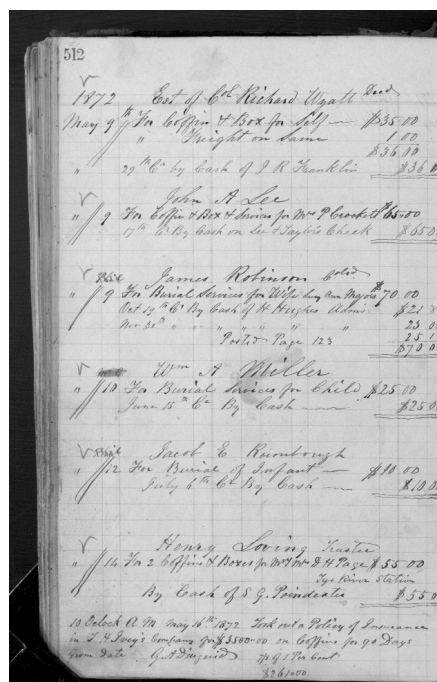 512
1872 Est of Col Richard Wyatt Decd
May 9th For Coffin & Box for Self — $35.00
" Freight on Same 1 00
$36 00
" 29th Cr by Cash of J R Franklin $36 0
John A Lee
" 9 For Coffin & Box & Services for Mrs P Crockett $65.00
17th Cr By Cash on Lee & Taylors Check $65 0
James Robinson Cold
" 9 For Burial Services for Wife Lucy Ann Majors $70.00
Oct 19th Cr By Cash of H Hughes Admr $21
Nov 30th " " " " " " " 23 0
Posted Page 123 25 1
$70 0
Wm A Miller
" 10 For Burial Services for Child $25.00
June 15th Cr By Cash — $25 0
Jacob E
" 12 For Burial of Infant — $10.00
July 6th Cr By Cash — $10 0
Henry Loving Trustee
" 14 For 2 Coffins & Boxes for Mr & Mrs D H Page $55 00
Tye River Station
By Cash of S G Poindexter $55 0
10 Oclock A M May 16th 1872 Took out a Policy of Insurance
in Company for $3500.00 on Coffins for 90 Days
from date G A Diuguid of 1 Per Cent